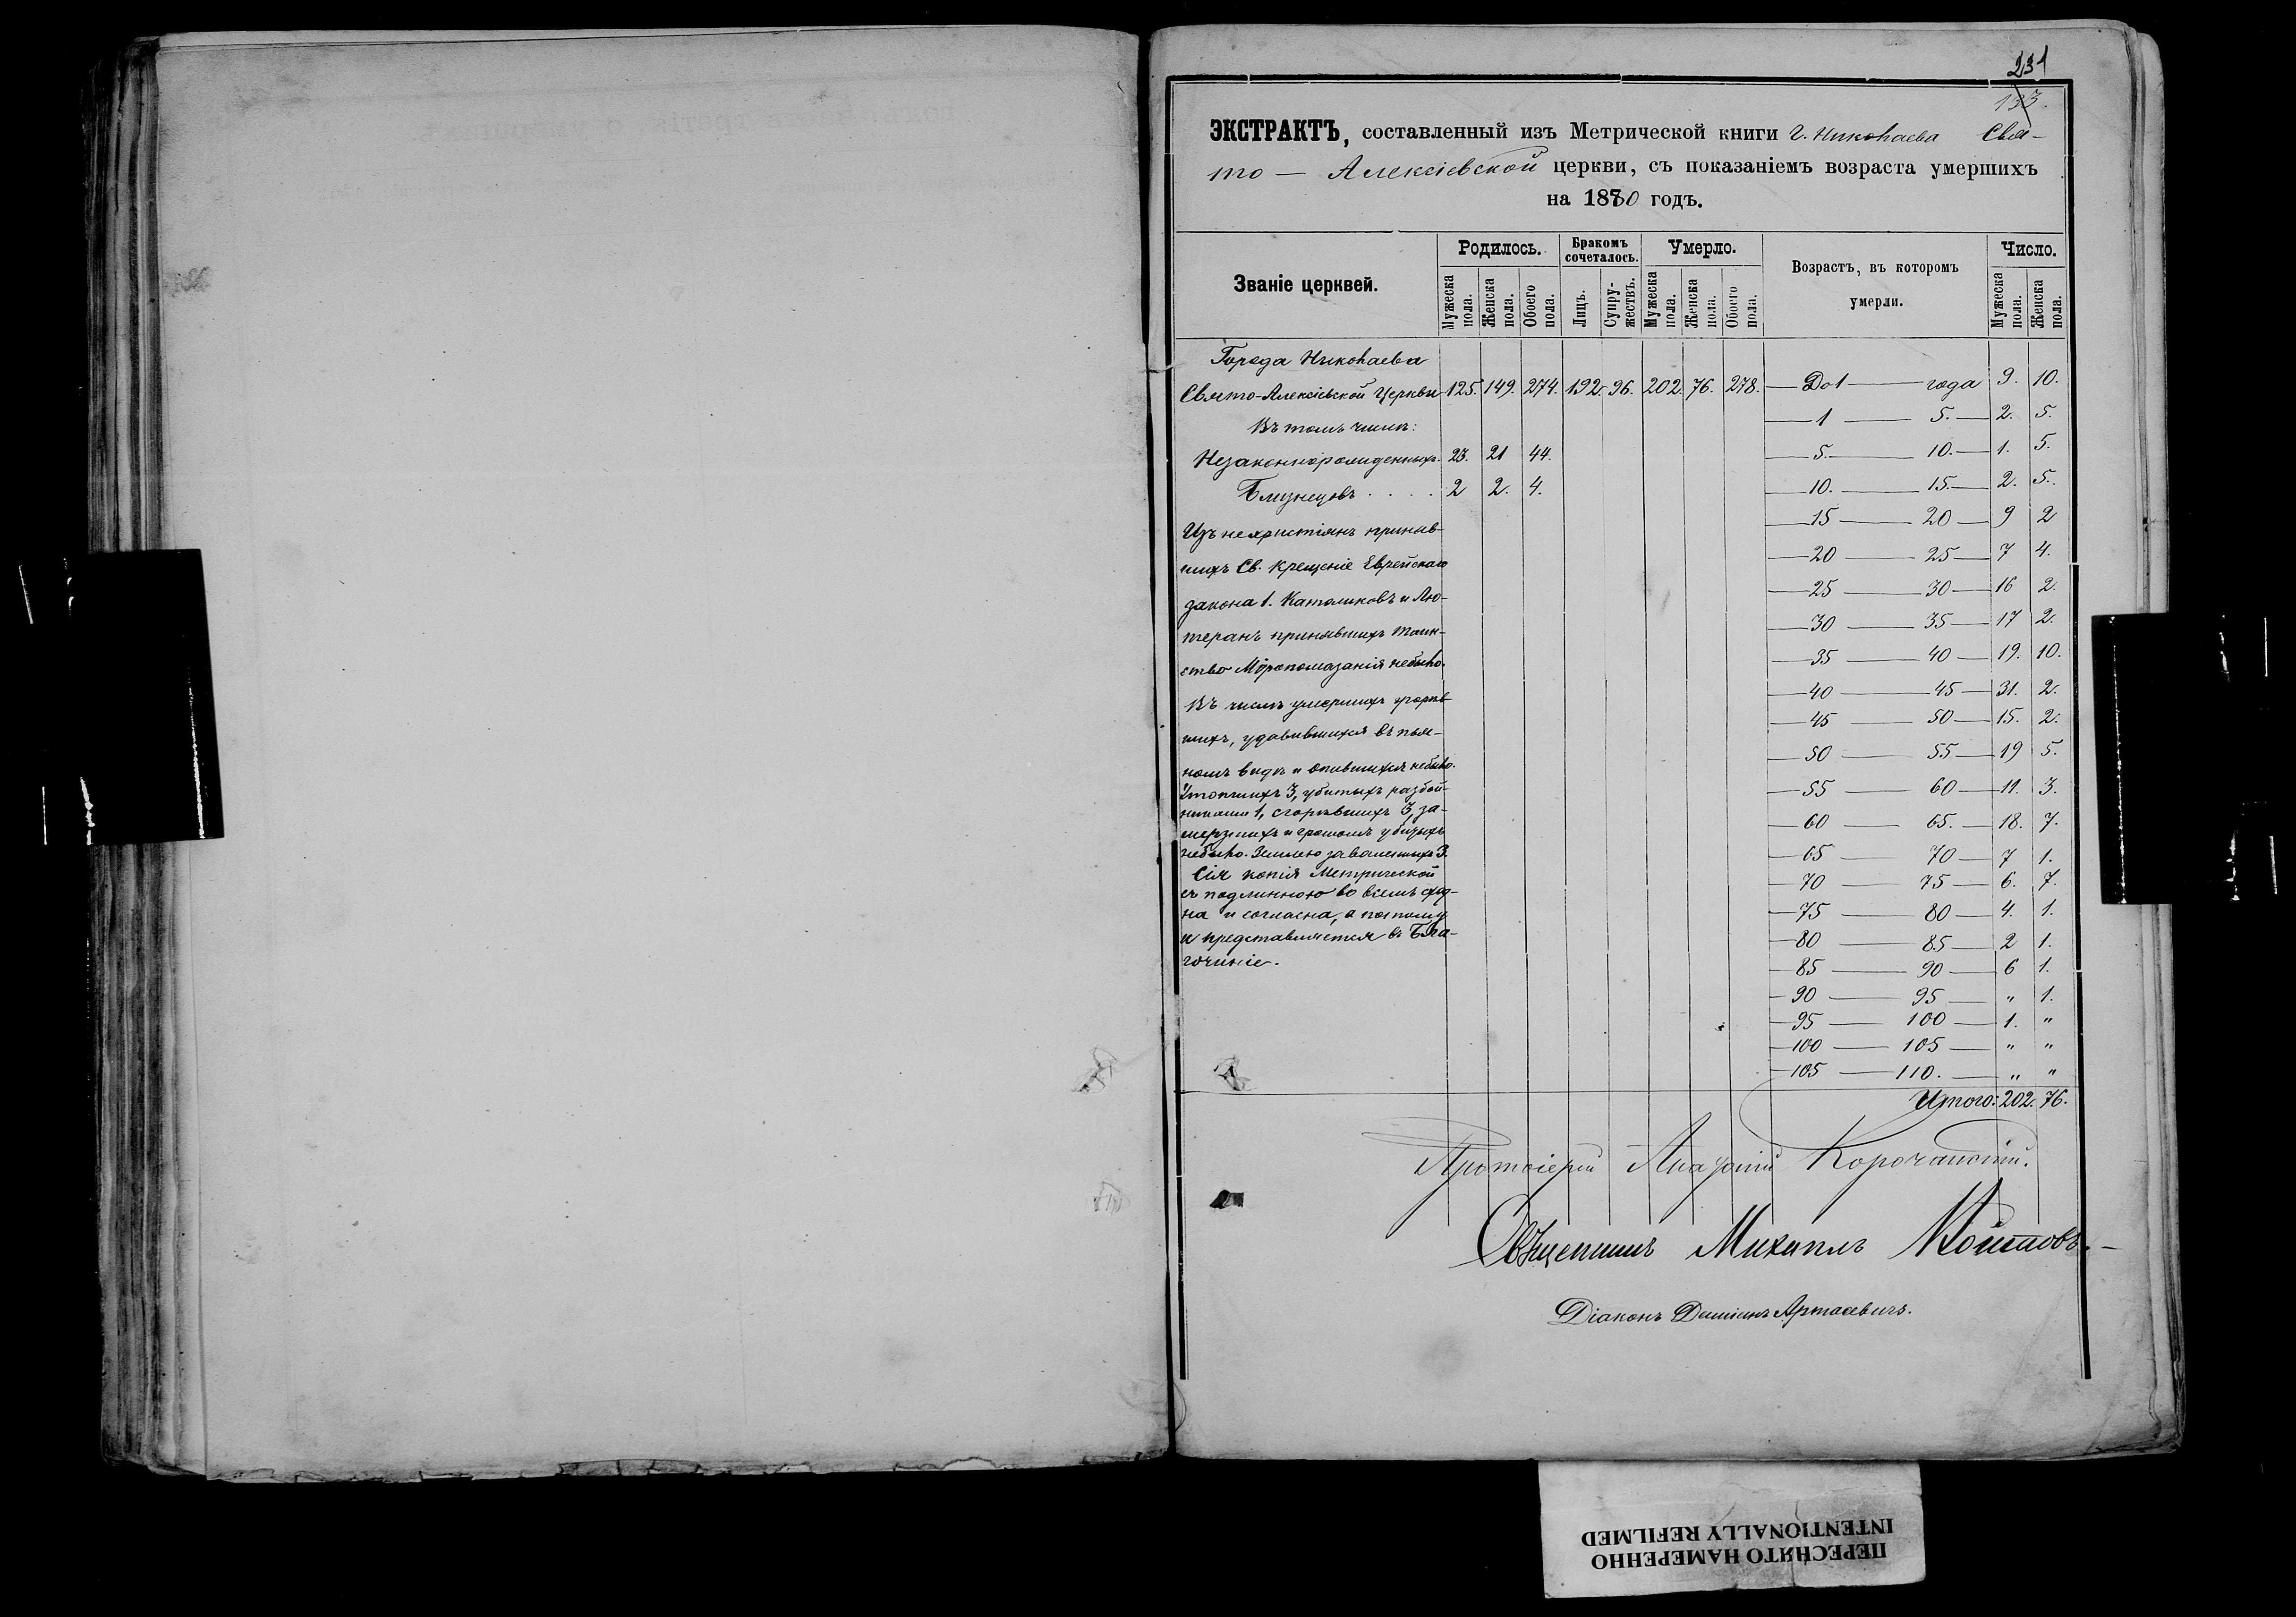 231
133.
ЭКСТРАКТЪ, составленный изъ Метрической книги г. Николаева Свя-
то — Алексіевской церкви, съ показаніемъ возраста умершихъ
на 1880 годъ.
Званіе церквей. Родилось. Бракомъ сочеталось. Умерло. Возрастъ, въ которомъ умерли. Число.
Мужеска пола. Женска пола. Обоего пола. Лицъ. Супру-жествъ. Мужеска пола. Женска пола. Обоего пола. Мужеска пола. Женска пола.
Города Николаева
Свято-Алексіевской Церкви 125. 149. 274. 192. 96. 202. 76. 278.
Въ томъ числѣ:
Незаконнорожденныхъ. 23. 21 44.
Близнецовъ . . . . 2 2. 4.
Изъ нехристіанъ приняв-
шихъ Св. Крещеніе Еврейскаго
закона 1. Католиковъ и Лю-
теранъ принявшихъ таин-
ство Мѵропомазанія небыло.
Въ числѣ умершихъ
шихъ, удавившихся въ пья-
номъ видѣ и опившихся небыло.
Утопшихъ 3, убитыхъ разбой-
никами 1, сгорѣвшихъ 3, за-
мерзшихъ и громомъ убитыхъ
небыло. Землею заваленныхъ 3.
Сія копія Метрической
съ подлинною во всемъ сход-
на и согласна, а потому
и представляется въ Бла-
гочиніе.
До 1 — года 9. 10.
1 — 5. — 2. 5.
5. — 10. — 1. 5.
10. — 15. — 2. 5.
15 — 20 — 9 2
20 — 25 — 7 4.
25 — 30 — 16 2.
30 — 35 — 17 2.
35 — 40 — 19. 10.
40 — 45 — 31. 2.
45 — 50 — 15. 2.
50 — 55 — 19 5.
55 — 60 — 11. 3.
60 — 65. — 18. 7.
65 — 70 — 7 1.
70 — 75 — 6. 7.
75 — 80 — 4. 1.
80 — 85 — 2 1.
85 — 90 — 6 1.
90 — 95 — " 1.
95 — 100 — 1. "
100 — 105 — " "
105 — 110. — " "
Итого: 202. 76.
Протоіерей
Священникъ Михаилъ
Діаконъ Даміанъ Артасевичъ.
ПЕРЕСНЯТО НАМЕРЕННО
INTENTIONALLY REFILMED